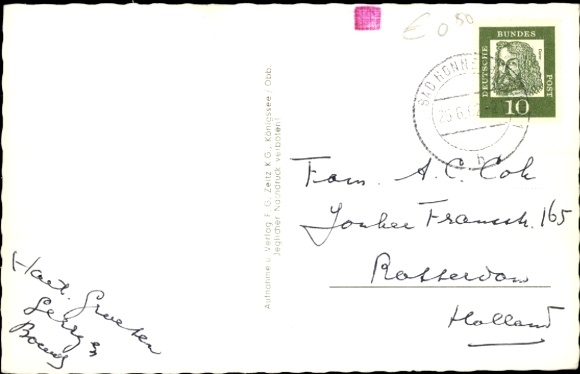 € 0 80
DEUTSCHE BUNDES POST
Dürer
10
BAD HONNEF
h
Aufnahme u. Verlag F. G. Zeitz K.G., Königssee / Obb.
Jeglicher Nachdruck verboten!
Fam. A. C. Cok
Jonker Fransstr. 165
Rotterdam
Holland
Hart. Groeten